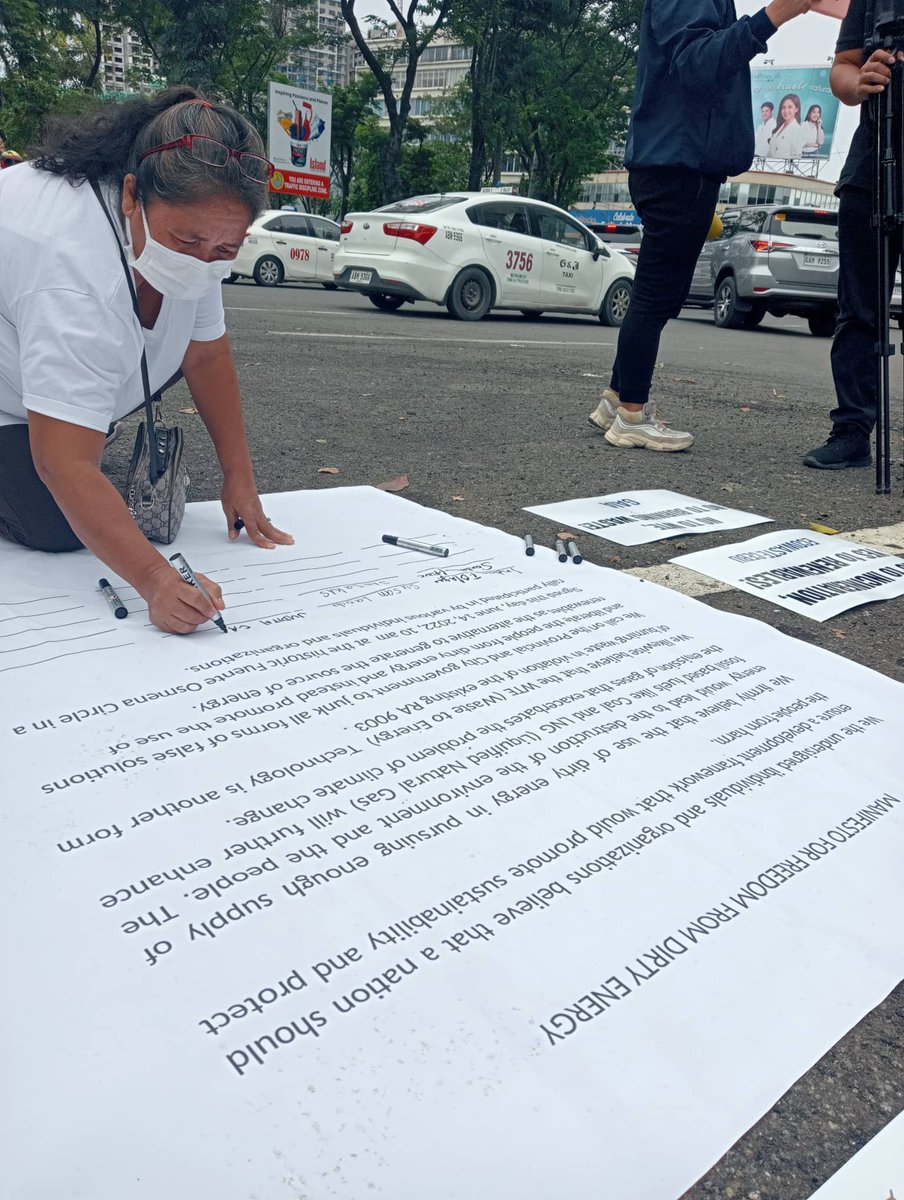 Inspiring Passions and Pistons
Island
YOU ARE ENTERING A
TRAFFIC DISCIPLINE ZONE
0978
3756
G & J
TAXI
ABW 9365
GAM 9255
MANIFESTO FOR FREEDOM FROM DIRTY ENERGY
We the undersigned individuals and organizations believe that a nation should
ensure a development framework that would promote sustainability and protect
the people from harm.
We firmly believe that the use of dirty energy in pursuing enough supply of
energy would lead to the destruction of the environment and the people. The
fossil based fuels like Coal and LNG (Liquified Natural Gas) will further enhance
the emission of gases that exacerbates the problem of climate change.
We likewise believe that the WTE (Waste to Energy) Technology is another form
of burning waste in violation of the existing RA 9003.
We call on the Provincial and City government to junk all forms of false solutions
and liberate the people from dirty energy and instead promote the use of
renewables as the alternative to generate the source of energy.
Signed this day, June 14, 2022, 10 am at the historic Fuente Osmena Circle in a
rally participated in by various individuals and organizations.
NO TO WTE,
NO TO BURNING WASTE!
NO TO INCINERATION,
YES TO RENEWABLES!